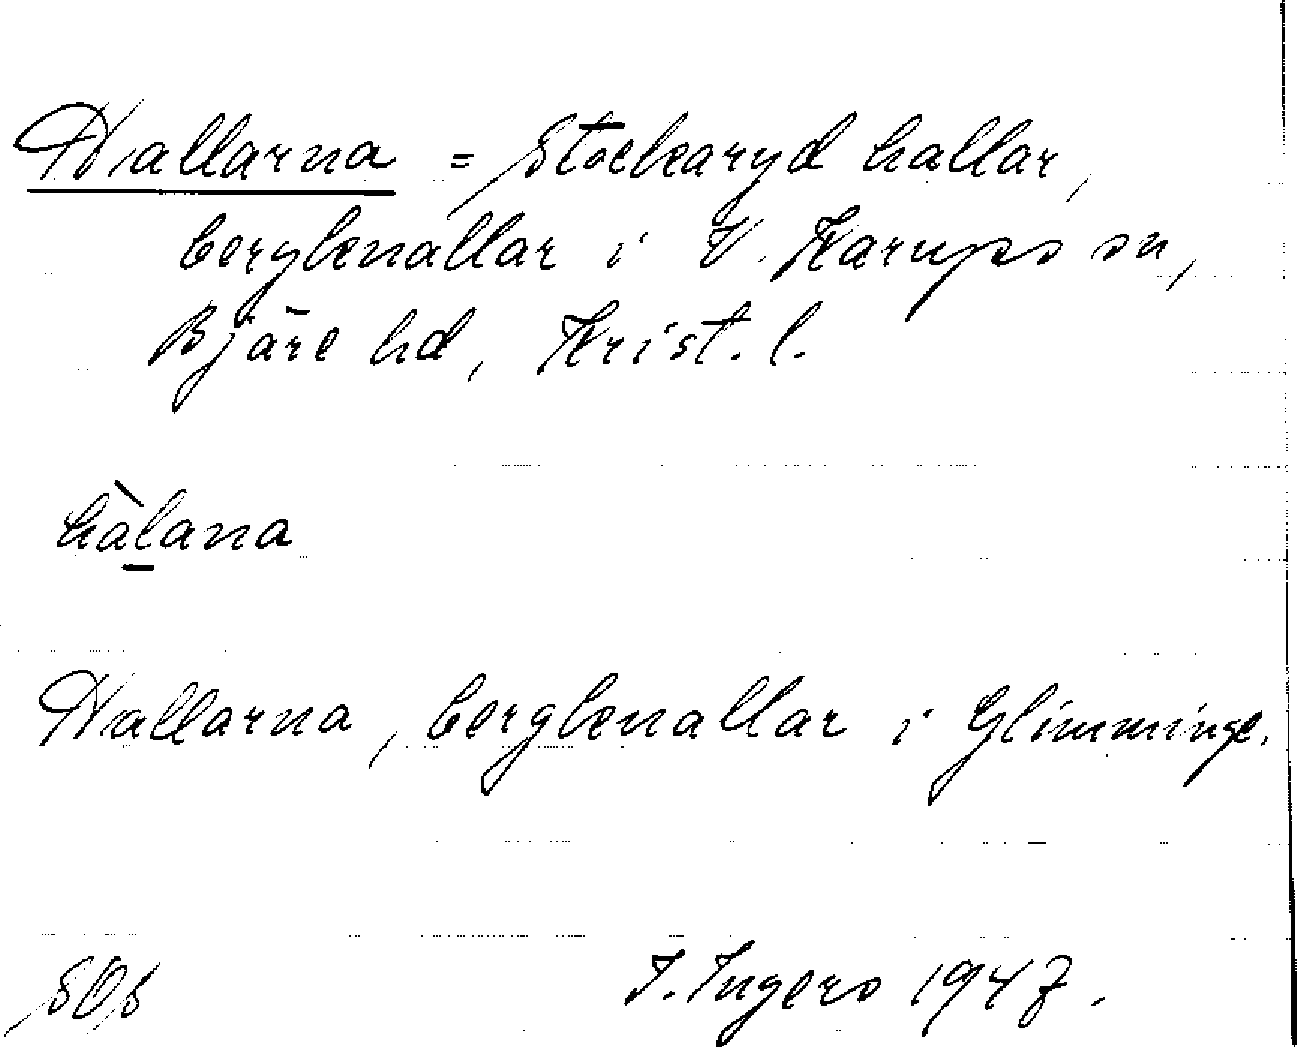 Hallarna = Stockaryd hallar,
bergknallar i V. Karups sn,
Bjäre hd, Krist. l.
hàl̲ana
Hallarna, bergknallar i Glimminge.
SOS
I. Ingers 1947.